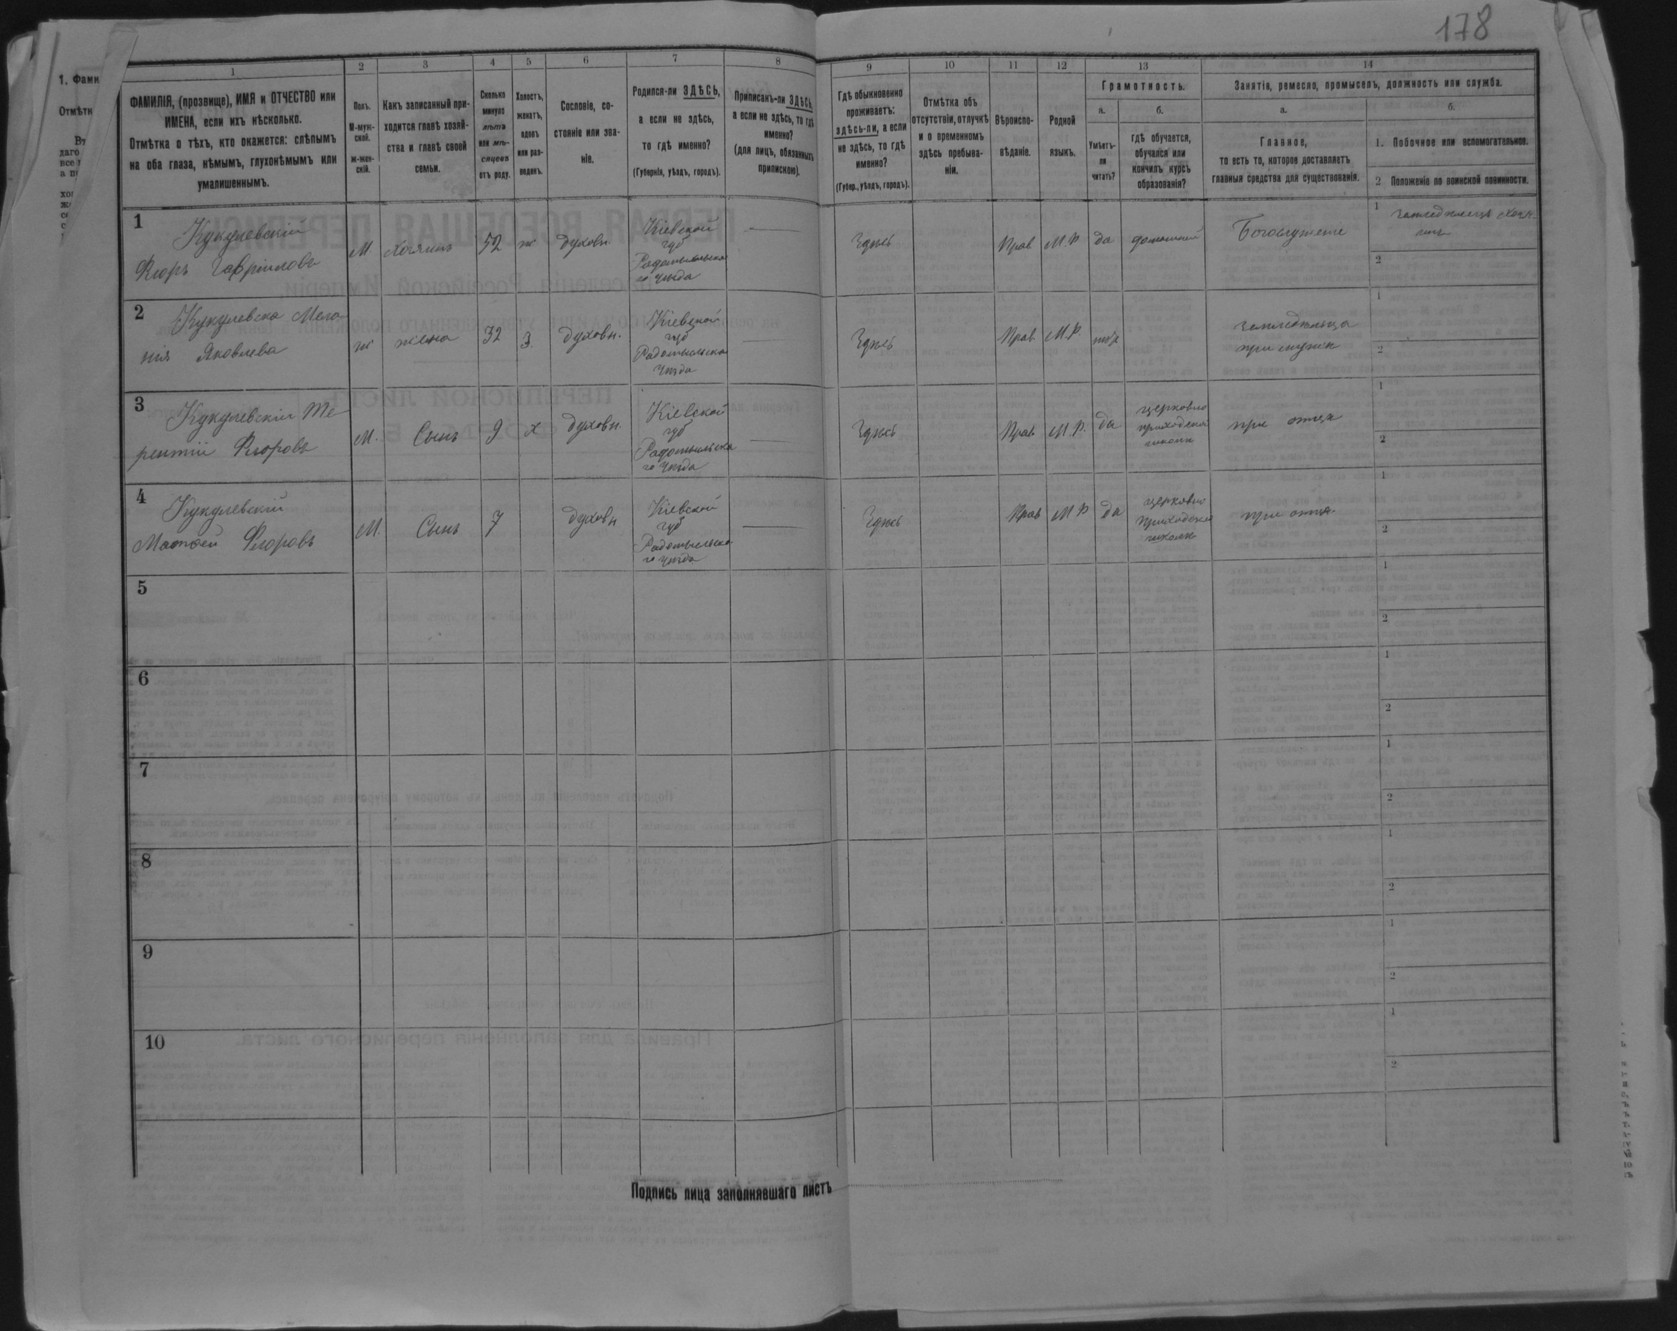 178
1. Фами
Отмѣтк
1
2
3
4
5
6
7
8
9
10
11
12
13
14
ФАМИЛІЯ, (прозвище), ИМЯ и ОТЧЕСТВО или
ИМЕНА, если ихъ нѣсколько.
Отмѣтка о тѣхъ, кто окажется: слѣпымъ
на оба глаза, нѣмымъ, глухонѣмымъ или
умалишеннымъ.
Полъ.
М-муж-
ской.
ж-жен-
скій.
Какъ записанный при-
ходится главѣ хозяй-
ства и главѣ своей
семьи.
Сколько
минуло
лѣтъ
или мѣ-
сяцевъ
отъ роду.
Холостъ,
женатъ,
вдовъ
или раз-
веденъ.
Сословіе, со-
стояніе или зва-
ніе.
Родился-ли ЗДѢСЬ,
а если не здѣсь,
то гдѣ именно?
(Губернія, уѣздъ, городъ).
Приписанъ-ли ЗДѢСЬ,
а если не здѣсь, то гдѣ
именно?
(для лицъ, обязанныхъ
припискою).
Гдѣ обыкновенно
проживаетъ:
здѣсь-ли, а если
не здѣсь, то гдѣ
именно?
(Губер., уѣздъ, городъ).
Отмѣтка объ
отсутствіи, отлучкѣ
и о временномъ
здѣсь пребыва-
ніи.
Вѣроиспо-
вѣданіе.
Родной
языкъ.
Грамотность.
а.
Умѣетъ-
ли
читать?
б.
гдѣ обучается,
обучался или
кончилъ курсъ
образованія?
Занятіе, ремесло, промыселъ, должность или служба.
а.
Главное,
то есть то, которое доставляетъ
главныя средства для существованія.
б.
1. Побочное или вспомогательное.
2 Положеніе по воинской повинности.
1
Кукулевскій
Егоръ Гавріиловъ
М
Хозяинъ
52
ж
духовн
Кіевской
губ
Радомысльска
го уѣзда
Здѣсь
Прав
М.Р
да
домашній
Богослуженіе
1
земледѣлецъ
2
2
Кукулевска Мела
нія Яковлева
ж
жена
32
З.
духовн.
Кіевской
губ
Радомысльска
уѣзда
Здѣсь
Прав
М.Р.
при мужѣ
1
2
3
Кукулевскій Те
рентій Егоровъ
М.
Сынъ
9
х
духовн
Кіевской
губ
Радомысльска
го уѣзда
Здѣсь
Прав
М.Р.
да
церковно
приходской
школѣ
при отцѣ
1
2
4
Кукулевскій
Матѳей Егоровъ
М.
Сынъ
7
духовн
Кіевской
губ
Радомысльска
го уѣзда
Здѣсь
Прав
М.Р
да
церковно
приходской
школѣ
при отцѣ
1
2
5
1
2
6
1
2
7
1
2
8
1
2
9
1
2
10
1
2
Подпись лица заполнявшаго листъ